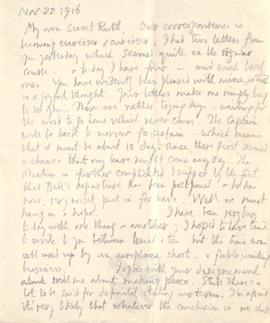 NOV 22 1916
My own sweet Ruth, Our correspondence is
becoming curiouser & curiouser; I had two letters from
you yesterday which seemed quite in the regular
course. & to-day I have four — and such lovely
ones. You have evidently been pleased with mine which
is a joyful thought. Your letters make me simply long
to see you. These are rather trying days — waiting for
the word to go home which never comes. The Captain
will be back to morrow for certain — which means
that it must be about 10 days since there first seemed
a chance that my leave might come any day. The
situation is further complicated I suppose by the fact
that Bell's departure has been postponed — he has
now, very noted, put in for leave. Well we must
hang on & hope. I have been very busy
to-day with one thing & another; I hoped to have time
to write to you between tea & but the time was
all used up by an aeroplane shoot — a futile waiting
business. I agree with your disagreement
about making peace. Still there's a
lot to be said for definitely stating our terms. I'm afraid
it's very likely that whatever the conclusion is we shall